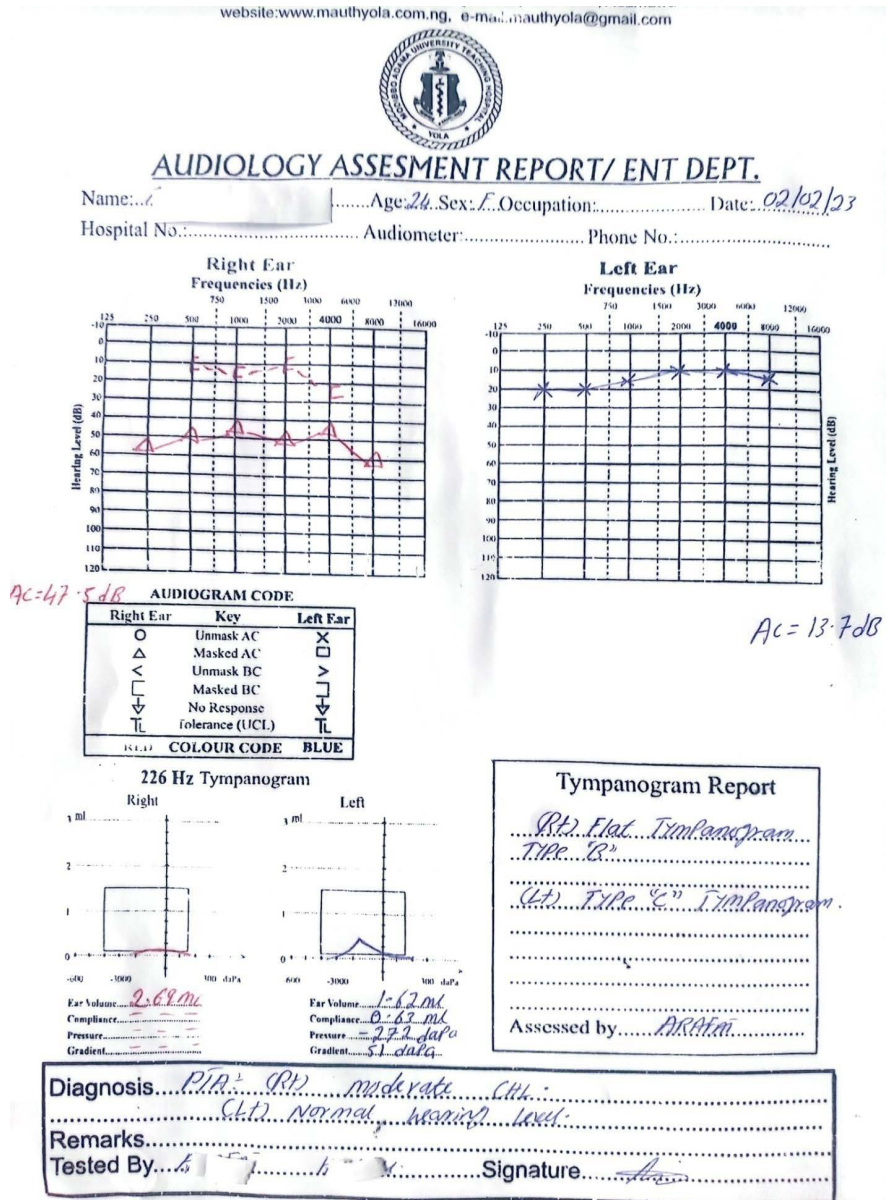 website:www.mauthyola.com.ng, e-mail.mauthyola@gmail.com
MODIBBO ADAMA UNIVERSITY TEACHING HOSPITAL
YOLA
AUDIOLOGY ASSESMENT REPORT/ ENT DEPT.
Name: Age: 24 Sex: F Occupation: Date: 02/02/23
Hospital No.: Audiometer: Phone No.:
Right Ear
Frequencies (Hz)
750 1500 3000 6000 12000
125 250 500 1000 2000 4000 8000 16000
-10
0
10
20
30
40
50
60
70
80
90
100
110
120
Hearing Level (dB)
Left Ear
Frequencies (Hz)
750 1500 3000 6000 12000
125 250 500 1000 2000 4000 8000 16000
-10
0
10
20
30
40
50
60
70
80
90
100
110
120
Hearing Level (dB)
AC=47.5dB
AC = 13.7dB
AUDIOGRAM CODE
Right Ear Key Left Ear
O Unmask AC X
△ Masked AC □
< Unmask BC >
[ Masked BC ]
No Response
TL Tolerance (UCL) TL
RED COLOUR CODE BLUE
226 Hz Tympanogram
Right
3 ml
2
1
0
-600 -3000 300 daPa
Ear Volume 2.69ml
Compliance - - -
Pressure - - -
Gradient - - -
Left
3 ml
2
1
0
600 -3000 300 daPa
Ear Volume 1.62 ml
Compliance 0.63 ml
Pressure -272 daPa
Gradient 51 daPa
Tympanogram Report
(Rt) Flat Tympanogram
TYPE "B"
(Lt) TYPE "C" Tympanogram.
Assessed by
Diagnosis PTA: (Rt) moderate CHL.
(Lt) Normal hearing level.
Remarks
Tested By Signature